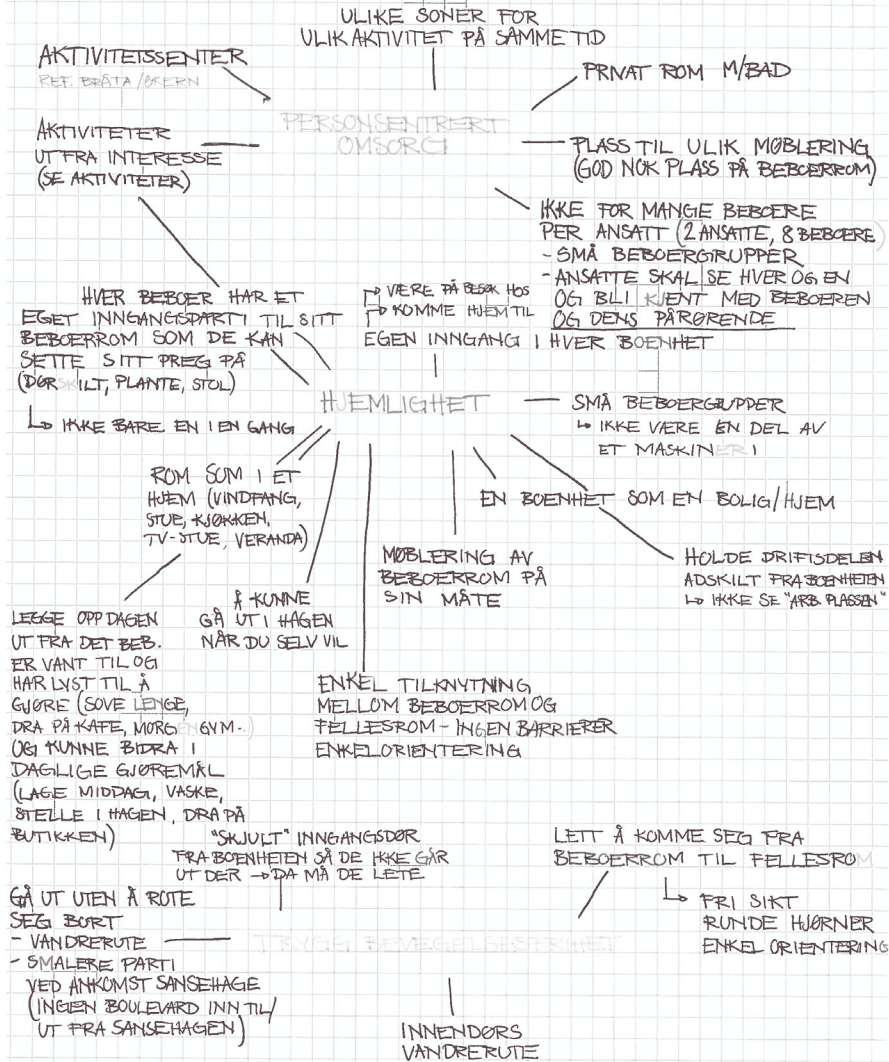 ULIKE SONER FOR
ULIK AKTIVITET PÅ SAMME TID
AKTIVITETSSENTER
REF. BRÅTA/ØKERN
PRIVAT ROM M/BAD
PERSONSENTRERT
OMSORG
AKTIVITETER
UT FRA INTERESSE
(SE AKTIVITETER)
PLASS TIL ULIK MØBLERING
(GOD NOK PLASS PÅ BEBOERROM)
IKKE FOR MANGE BEBOERE
PER ANSATT (2 ANSATTE, 8 BEBOERE)
- SMÅ BEBOERGRUPPER
- ANSATTE SKAL SE HVER OG EN
OG BLI KJENT MED BEBOEREN
OG DENS PÅRØRENDE
HVER BEBOER HAR ET
EGET INNGANGSPARTI TIL SITT
BEBOERROM SOM DE KAN
SETTE SITT PREG PÅ
(DØRSKILT, PLANTE, STOL)
↳ IKKE BARE EN I EN GANG
↱ VÆRE PÅ BESØK HOS
↱ KOMME HJEM TIL
EGEN INNGANG I HVER BOENHET
HJEMLIGHET
SMÅ BEBOERGRUPPER
↳ IKKE VÆRE EN DEL AV
ET MASKINERI
ROM SOM I ET
HJEM (VINDFANG,
STUE, KJØKKEN,
TV-STUE, VERANDA)
EN BOENHET SOM EN BOLIG/HJEM
MØBLERING AV
BEBOERROM PÅ
SIN MÅTE
HOLDE DRIFTSDELEN
ADSKILT FRA BOENHETEN
↳ IKKE SE "ARB. PLASSEN"
LEGGE OPP DAGEN
UT FRA DET BEB.
ER VANT TIL OG
HAR LYST TIL Å
GJØRE (SOVE LENGE,
DRA PÅ KAFE, MORGENGYM..)
OG KUNNE BIDRA I
DAGLIGE GJØREMÅL
(LAGE MIDDAG, VASKE,
STELLE I HAGEN, DRA PÅ
BUTIKKEN)
Å KUNNE
GÅ UT I HAGEN
NÅR DU SELV VIL
ENKEL TILKNYTNING
MELLOM BEBOERROM OG
FELLESROM - INGEN BARRIERER
ENKEL ORIENTERING
"SKJULT" INNGANGSDØR
FRA BOENHETEN SÅ DE IKKE GÅR
UT DER → DA MÅ DE LETE
LETT Å KOMME SEG FRA
BEBOERROM TIL FELLESROM
↳ FRI SIKT
RUNDE HJØRNER
ENKEL ORIENTERING
GÅ UT UTEN Å ROTE
SEG BORT
- VANDRERUTE
- SMALERE PARTI
VED ANKOMST SANSEHAGE
(INGEN BOULEVARD INN TIL/
UT FRA SANSEHAGEN)
TRYGG BEVEGELSESFRIHET
INNENDØRS
VANDRERUTE